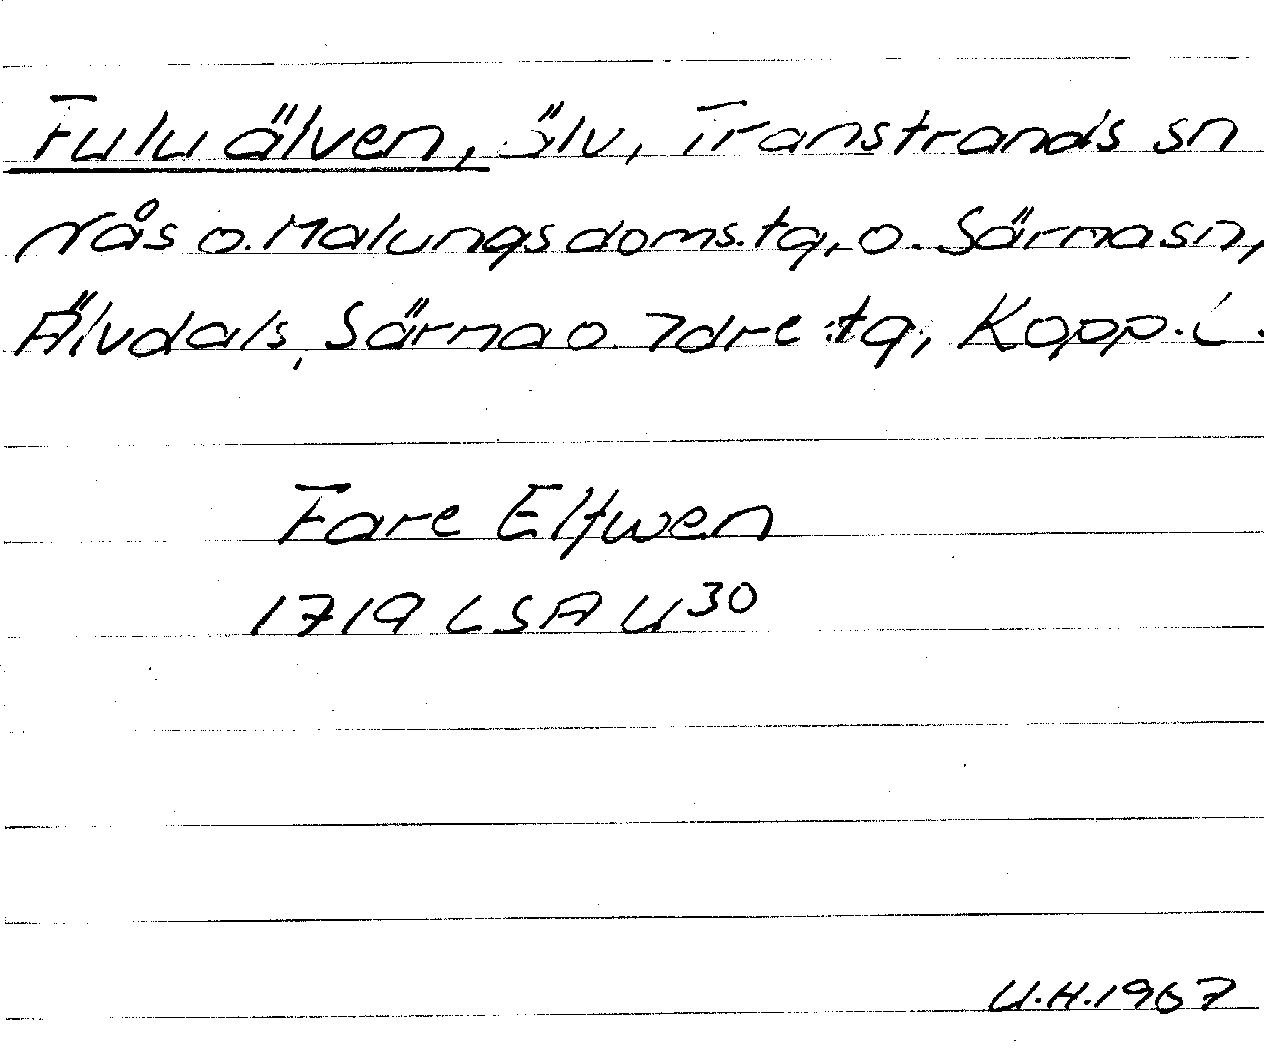 Fuluälven, älv, Transtrands sn
Nås o. Malungs doms. tg, o. Särna sn,
Älvdals, Särna o Idre tg, Kopp. L.
Fare Elfwen
1719 LSA U30
U.H. 1967